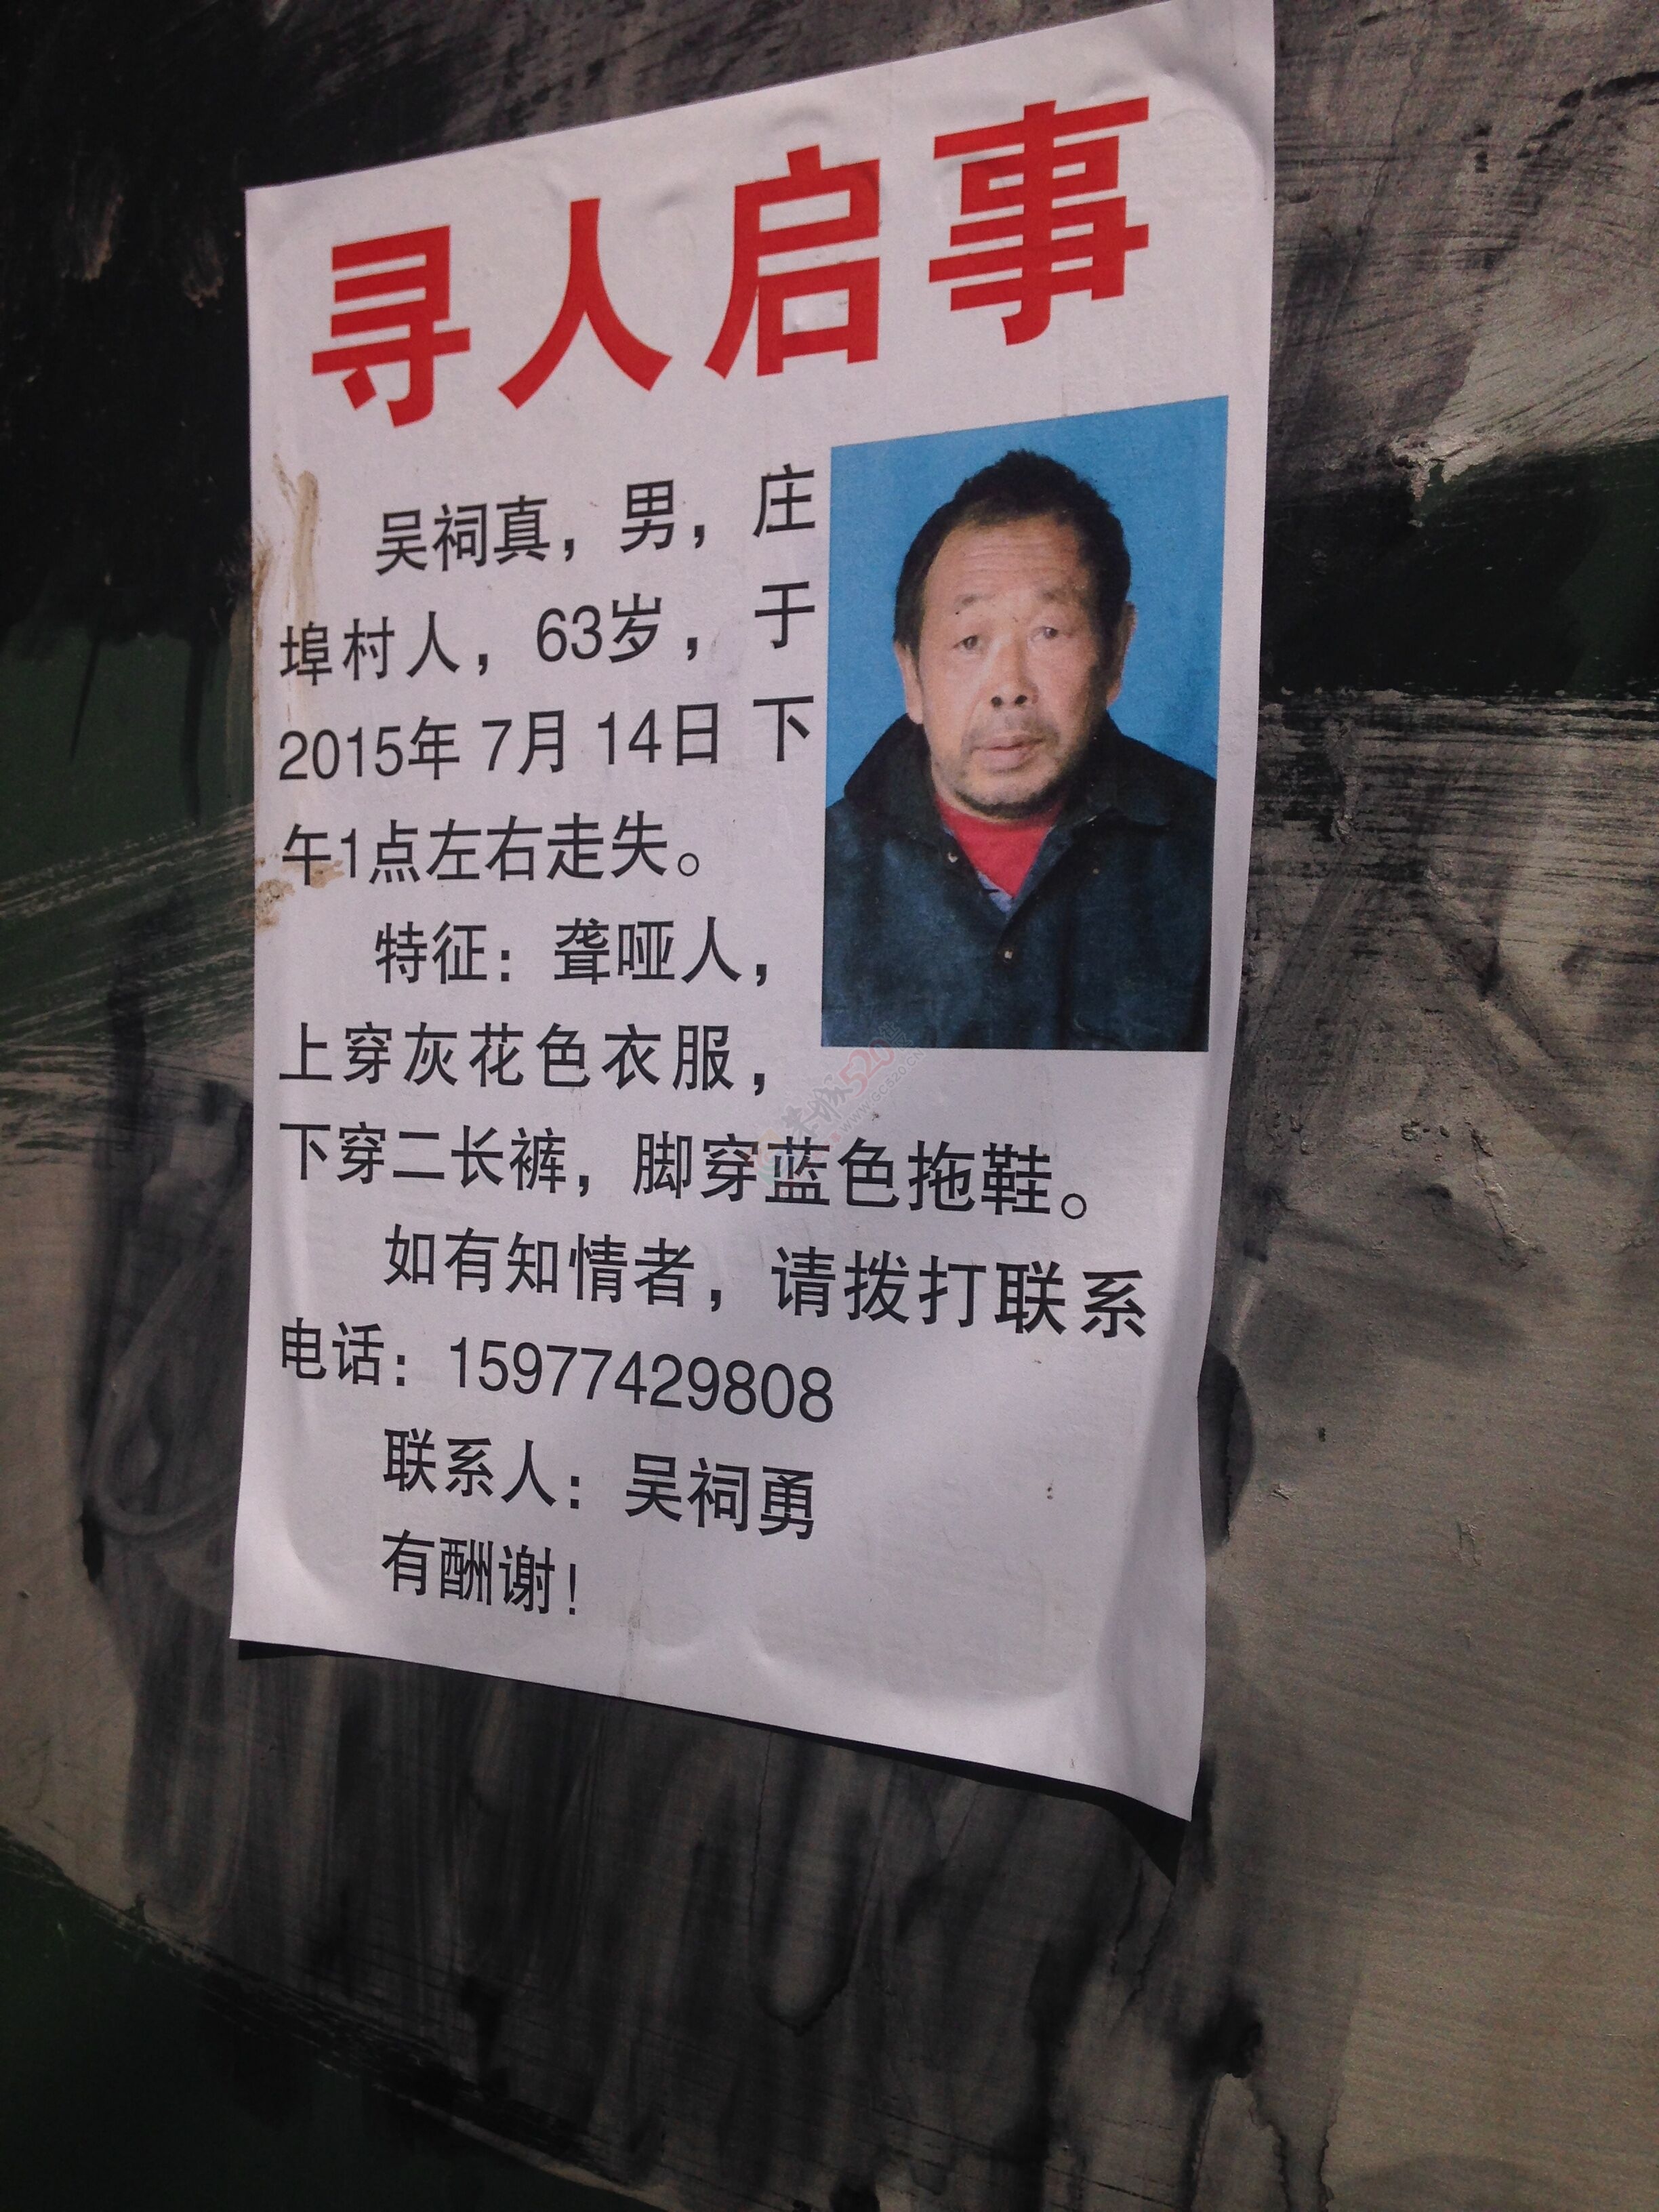 寻人启事
吴祠真，男，庄
埠村人，63岁，于
2015年 7月 14日 下
午1点左右走失。
特征：聋哑人，
上穿灰花色衣服，
下穿二长裤，脚穿蓝色拖鞋。
如有知情者，请拨打联系
电话：15977429808
联系人：吴祠勇
有酬谢！
WWW.GC520.CN